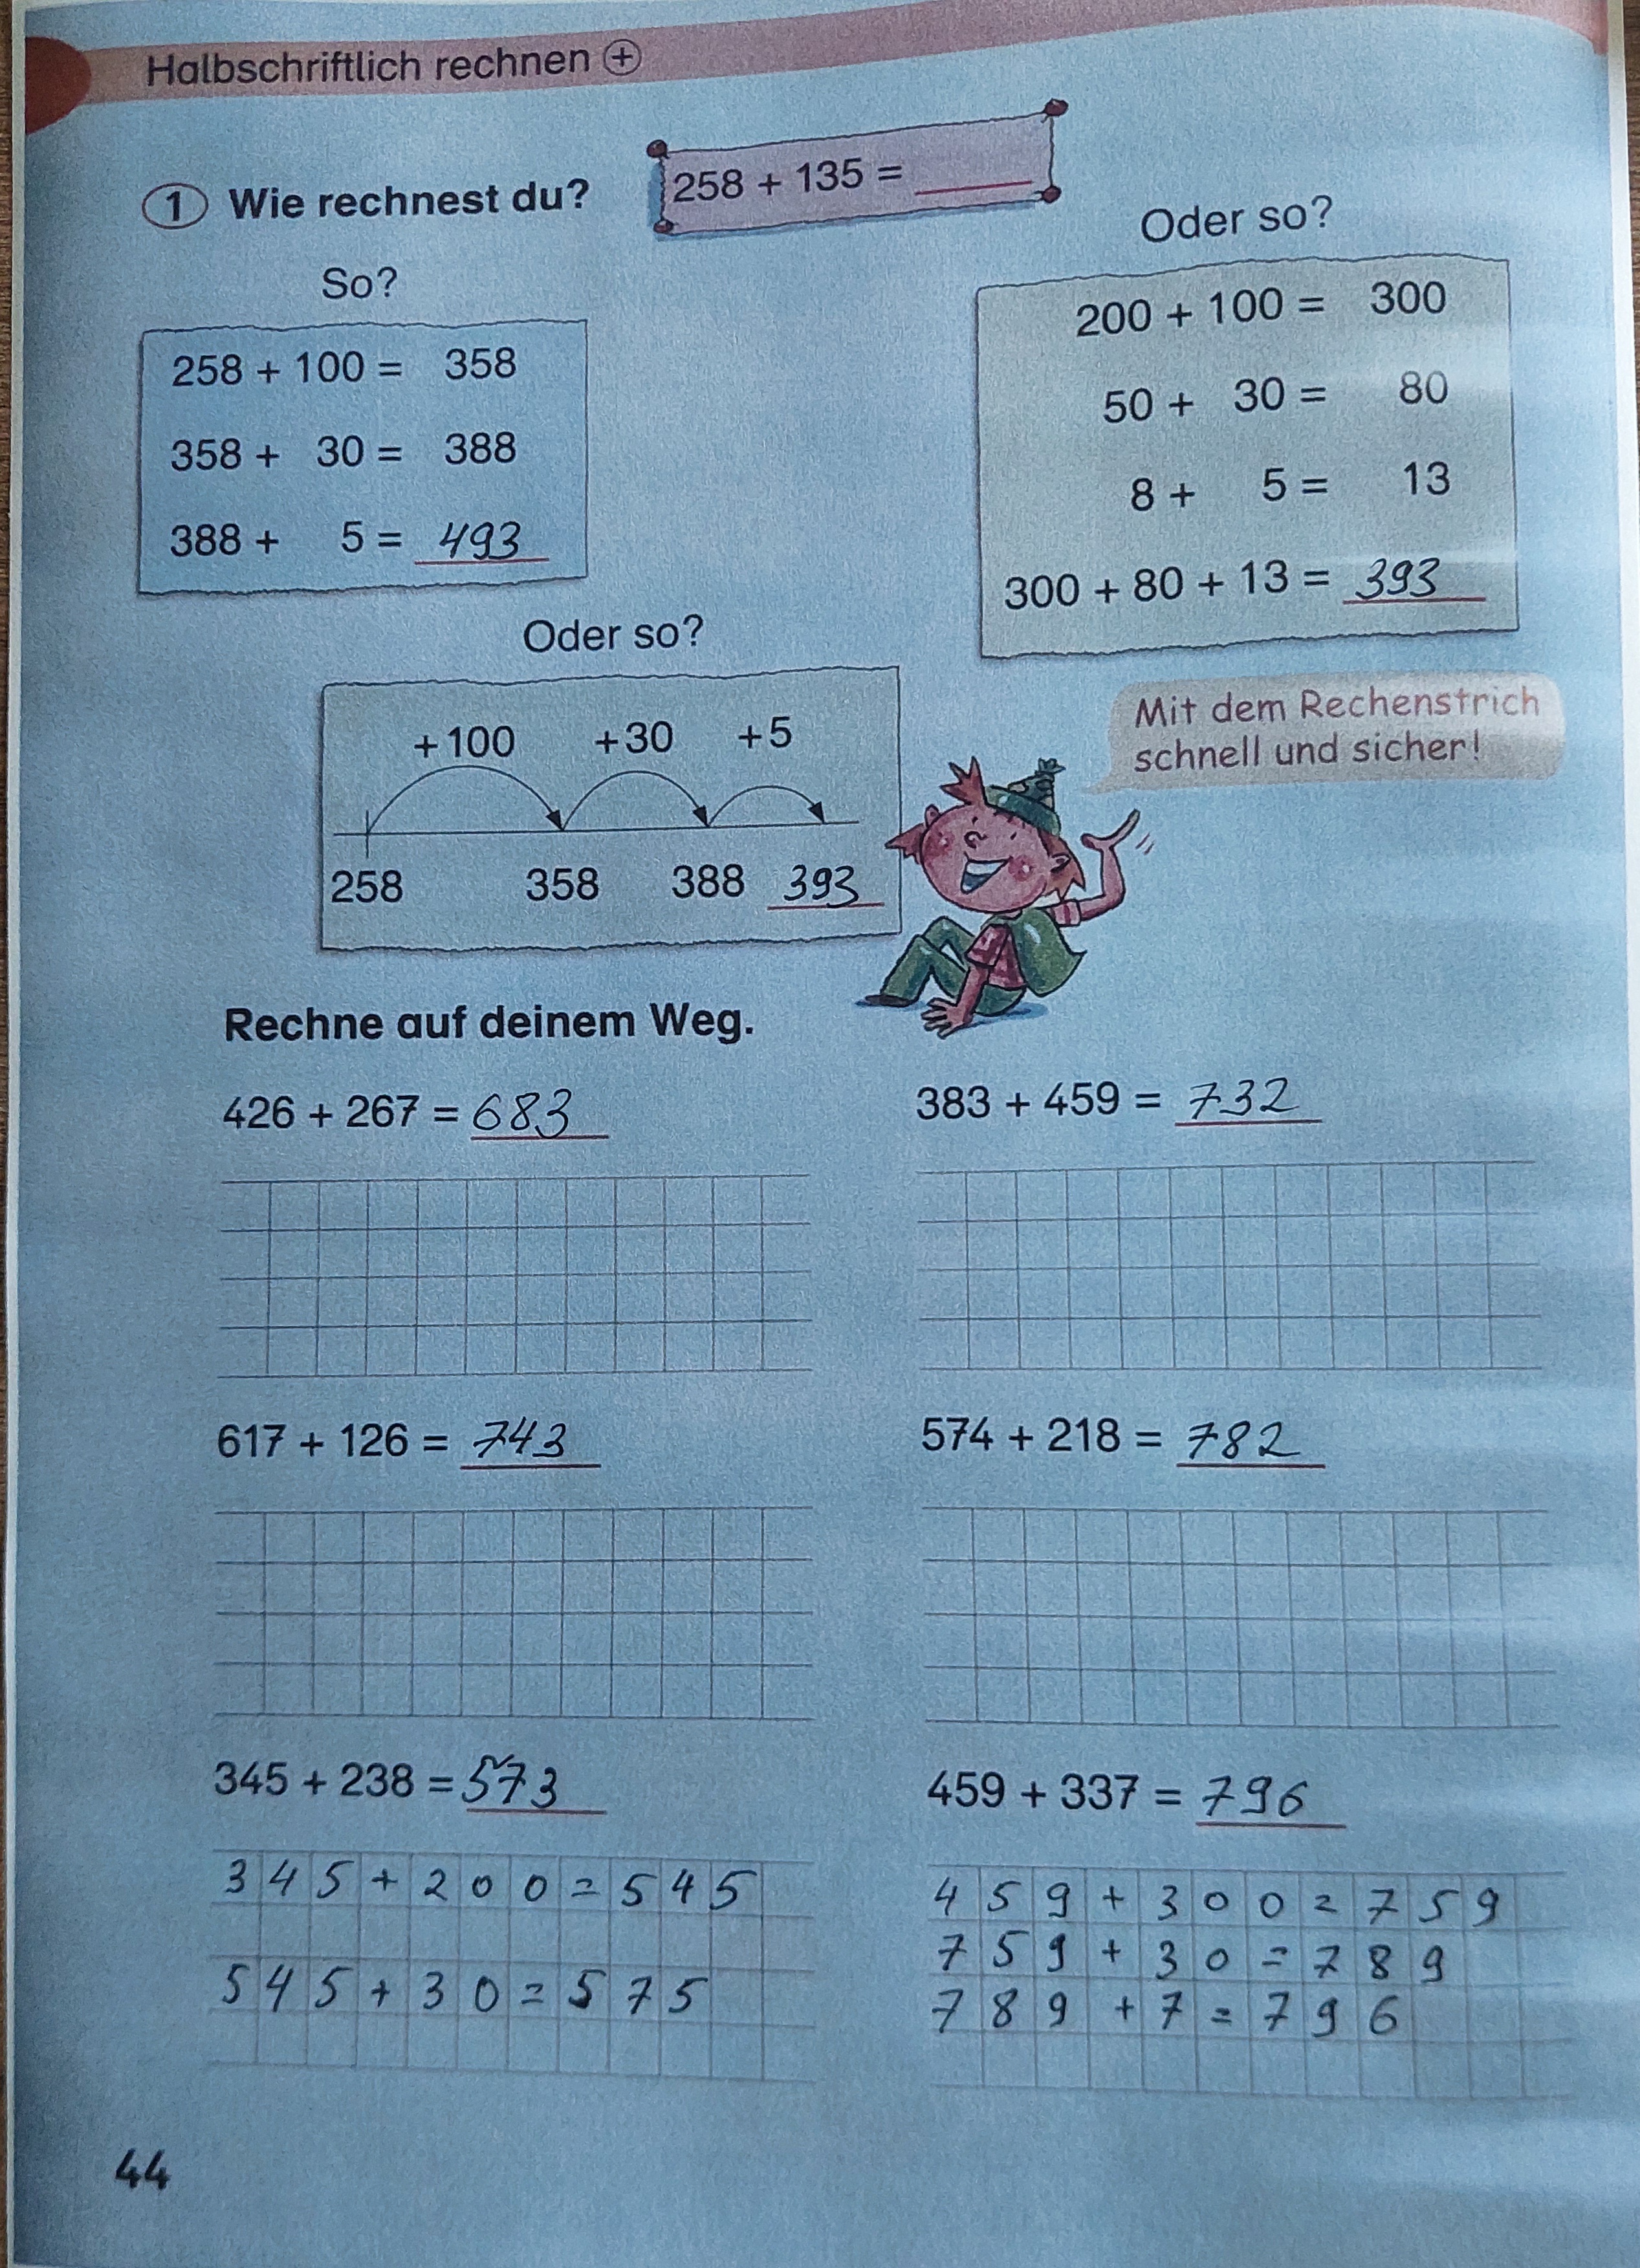 Halbschriftlich rechnen +
1 Wie rechnest du?
258 + 135 = ____
So?
258 + 100 = 358
358 + 30 = 388
388 + 5 = 493
Oder so?
200 + 100 = 300
50 + 30 = 80
8 + 5 = 13
300 + 80 + 13 = 393
Oder so?
+100 +30 +5
258 358 388 393
Mit dem Rechenstrich
schnell und sicher!
Rechne auf deinem Weg.
426 + 267 = 683
383 + 459 = 732
617 + 126 = 743
574 + 218 = 782
345 + 238 = 573
345+200=545
545+30=575
459 + 337 = 796
459+300=759
759+30=789
789+7=796
44